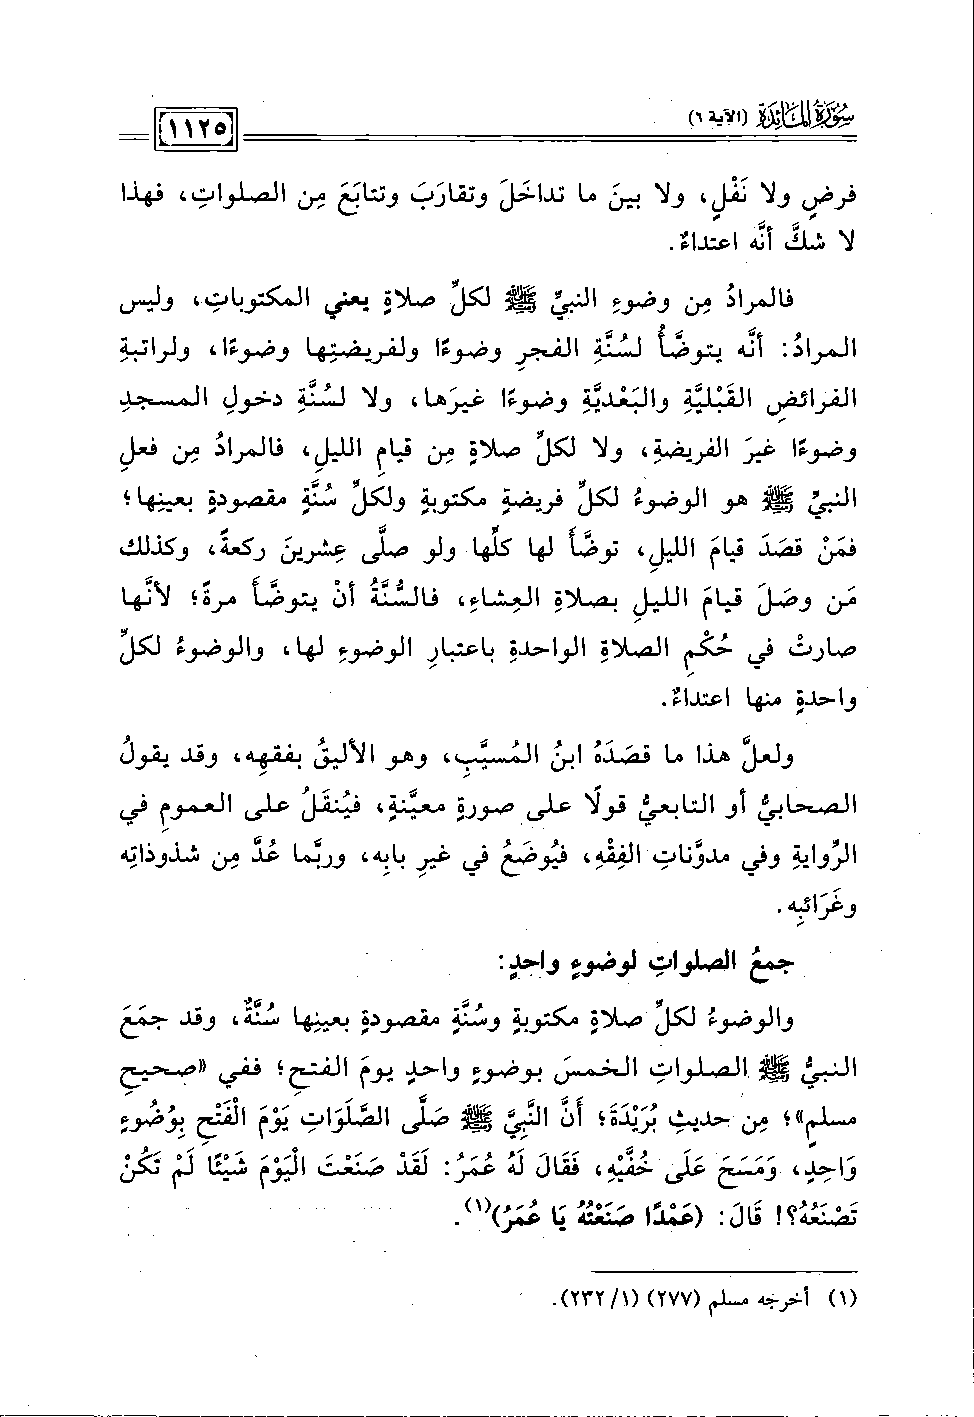 سُورَةُ المَائِدَة (الآية ٦)
١١٢٥
فرضٍ ولا نَفْلٍ، ولا بينَ ما تداخَلَ وتقارَبَ وتتابَعَ مِن الصلواتِ، فهذا
لا شكَّ أنَّه اعتداءٌ.
فالمرادُ مِن وضوءِ النبيِّ ﷺ لكلِّ صلاةٍ يعني المكتوباتِ، وليس
المرادُ: أنَّه يتوضَّأُ لسُنَّةِ الفجرِ وضوءًا ولفريضتِها وضوءًا، ولراتبةِ
الفرائضِ القَبْليَّةِ والبَعْديَّةِ وضوءًا غيرَها، ولا لسُنَّةِ دخولِ المسجدِ
وضوءًا غيرَ الفريضةِ، ولا لكلِّ صلاةٍ مِن قيامِ الليلِ، فالمرادُ مِن فعلِ
النبيِّ ﷺ هو الوضوءُ لكلِّ فريضةٍ مكتوبةٍ ولكلِّ سُنَّةٍ مقصودةٍ بعينِها؛
فمَنْ قصَدَ قيامَ الليلِ، توضَّأَ لها كلِّها ولو صلَّى عِشرينَ ركعةً، وكذلك
مَن وصَلَ قيامَ الليلِ بصلاةِ العِشاءِ، فالسُّنَّةُ أنْ يتوضَّأَ مرةً؛ لأنَّها
صارتْ في حُكْمِ الصلاةِ الواحدةِ باعتبارِ الوضوءِ لها، والوضوءُ لكلِّ
واحدةٍ منها اعتداءٌ.
ولعلَّ هذا ما قصَدَهُ ابنُ المُسيَّبِ، وهو الأليقُ بفقهِه، وقد يقولُ
الصحابيُّ أو التابعيُّ قولًا على صورةٍ معيَّنةٍ، فيُنقَلُ على العمومِ في
الرِّوايةِ وفي مدوَّناتِ الفِقْهِ، فيُوضَعُ في غيرِ بابِه، وربَّما عُدَّ مِن شذوذاتِه
وغَرَائبِه.
جمعُ الصلواتِ لوضوءٍ واحدٍ:
والوضوءُ لكلِّ صلاةٍ مكتوبةٍ وسُنَّةٍ مقصودةٍ بعينِها سُنَّةٌ، وقد جمَعَ
النبيُّ ﷺ الصلواتِ الخمسَ بوضوءٍ واحدٍ يومَ الفتحِ؛ ففي «صحيحِ
مسلمٍ»؛ مِن حديثِ بُرَيْدَةَ؛ أَنَّ النَّبِيَّ ﷺ صَلَّى الصَّلَوَاتِ يَوْمَ الْفَتْحِ بِوُضُوءٍ
وَاحِدٍ، وَمَسَحَ عَلَى خُفَّيْهِ، فَقَالَ لَهُ عُمَرُ: لَقَدْ صَنَعْتَ الْيَوْمَ شَيْئًا لَمْ تَكُنْ
تَصْنَعُهُ؟! قَالَ: (عَمْدًا صَنَعْتُهُ يَا عُمَرُ)(١).
(١) أخرجه مسلم (٢٧٧) (١/ ٢٣٢).